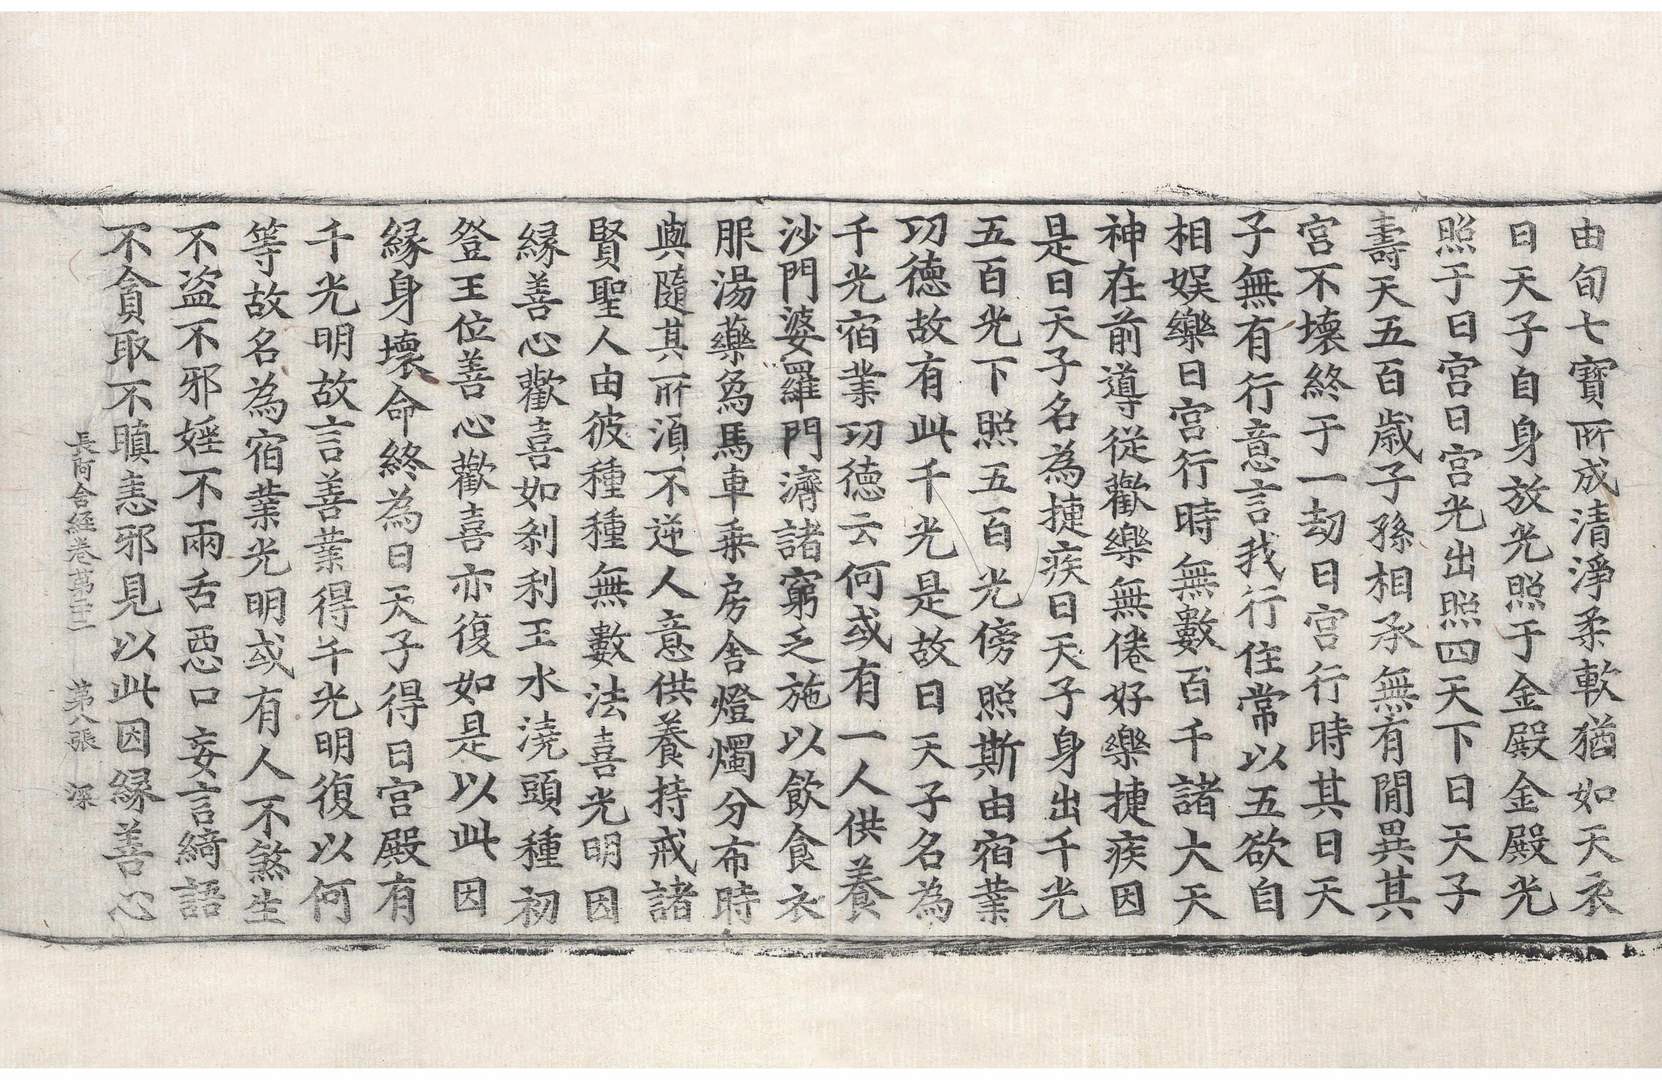 由旬七寶所成清淨柔軟猶如天衣
日天子自身放光照于金殿金殿光
照于日宮日宮光出照四天下日天子
壽天五百歲子孫相承無有閒異其
宮不壞終于一劫日宮行時其日天
子無有行意言我行住常以五欲自
相娛樂日宮行時無數百千諸大天
神在前導從歡樂無倦好樂揵疾因
是日天子名為揵疾日天子身出千光
五百光下照五百光傍照斯由宿業
功德故有此千光是故日天子名為
千光宿業功德云何或有一人供養
沙門婆羅門濟諸窮乏施以飲食衣
服湯藥象馬車乗房舍燈燭分布時
與隨其所湏不逆人意供養持戒諸
賢聖人由彼種種無數法喜光明因
緣善心歡喜如刹利王水澆頭種初
登王位善心歡喜亦復如是以此因
緣身壞命終為日天子得日宮殿有
千光明故言善業得千光明復以何
等故名為宿業光明或有人不煞生
不盜不邪婬不兩舌惡口妄言綺語
不貪取不瞋恚邪見以此因緣善心
長阿含經卷苐二十二　苐八張　深